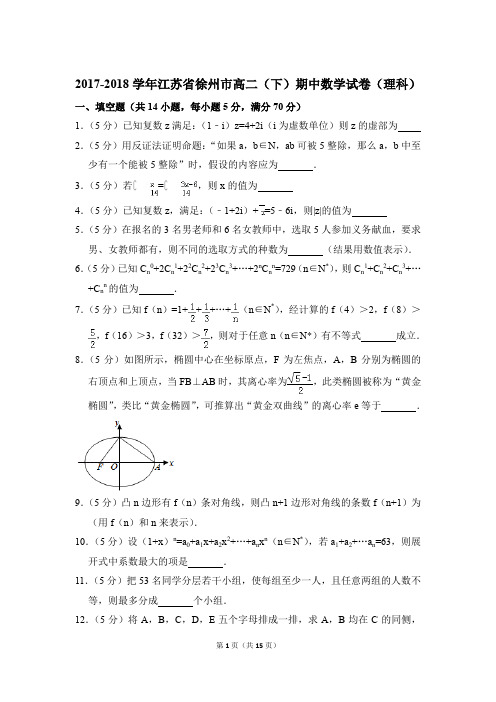 2017-2018 学年江苏省徐州市高二（下）期中数学试卷（理科）
一、填空题（共14小题，每小题5分，满分70分）
1．（5分）已知复数z满足：（1﹣i）z=4+2i（i为虚数单位）则z的虚部为
2．（5分）用反证法证明命题：“如果a，b∈N，ab可被5整除，那么a，b中至
少有一个能被5整除”时，假设的内容应为　　．
3．（5分）若C₁₄ˣ=C₁₄³ˣ⁻⁶，则x的值为
4．（5分）已知复数z，满足：（﹣1+2i）+z̄=5﹣6i，则|z|的值为
5．（5分）在报名的3名男老师和6名女教师中，选取5人参加义务献血，要求
男、女教师都有，则不同的选取方式的种数为　　（结果用数值表示）．
6．（5分）已知Cₙ⁰+2Cₙ¹+2²Cₙ²+2³Cₙ³+…+2ⁿCₙⁿ=729（n∈N*），则Cₙ¹+Cₙ²+Cₙ³+…
+Cₙⁿ的值为　　．
7．（5分）已知f（n）=1+1/2+1/3+…+1/n（n∈N*），经计算的f（4）>2，f（8）>
5/2，f（16）>3，f（32）>7/2，则对于任意n（n∈N*）有不等式　　成立．
8．（5分）如图所示，椭圆中心在坐标原点，F为左焦点，A，B分别为椭圆的
右顶点和上顶点，当FB⊥AB时，其离心率为(√5-1)/2，此类椭圆被称为“黄金
椭圆”，类比“黄金椭圆”，可推算出“黄金双曲线”的离心率e等于　　．
y
F O A x
9．（5分）凸n边形有f（n）条对角线，则凸n+1边形对角线的条数f（n+1）为
（用f（n）和n来表示）．
10．（5分）设（1+x）ⁿ=a₀+a₁x+a₂x²+…+aₙxⁿ（n∈N*），若a₁+a₂+…aₙ=63，则展
开式中系数最大的项是　　．
11．（5分）把53名同学分层若干小组，使每组至少一人，且任意两组的人数不
等，则最多分成　　个小组．
12．（5分）将A，B，C，D，E五个字母排成一排，求A，B均在C的同侧，
第1页（共15页）